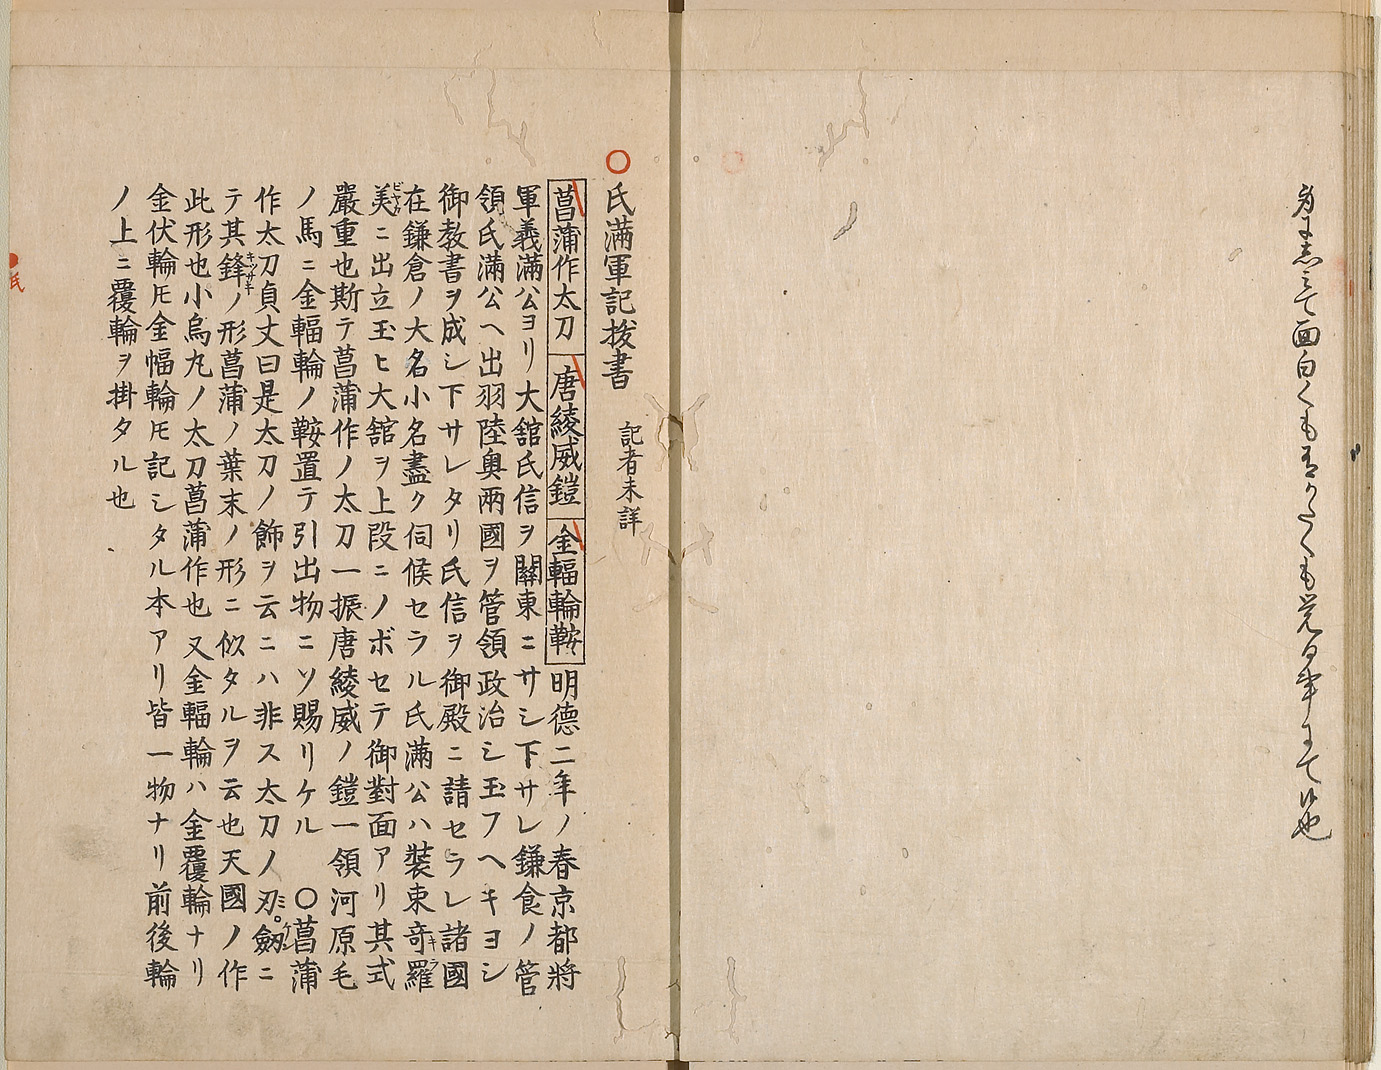 面白くも
○氏滿軍記拔書 記者未詳
菖蒲作太刀 唐綾威鎧 金輻輪鞍 明德二年ノ春京都將
軍義滿公ヨリ大舘氏信ヲ關東ニサシ下サレ鎌倉ノ管
領氏滿公ヘ出羽陸奧兩國ヲ管領政治シ玉フヘキヨシ
御敎書ヲ成シ下サレタリ氏信ヲ御殿ニ請セラレ諸國
在鎌倉ノ大名小名盡ク伺候セラル氏滿公ハ裝束奇羅
美ニ出立玉ヒ大舘ヲ上段ニノボセテ御對面アリ其式
嚴重也斯テ菖蒲作ノ太刀一振唐綾威ノ鎧一領河原毛
ノ馬ニ金輻輪ノ鞍置テ引出物ニソ賜リケル ○菖蒲
作太刀貞丈曰是太刀ノ飾ヲ云ニハ非ス太刀ノ刃劔ニ
テ其鋒ノ形菖蒲ノ葉末ノ形ニ似タルヲ云也天國ノ作
此形也小烏丸ノ太刀菖蒲作也又金輻輪ハ金覆輪ナリ
金伏輪𪜈金幅輪𪜈記シタル本アリ皆一物ナリ前後輪
ノ上ニ覆輪ヲ掛タル也
氏